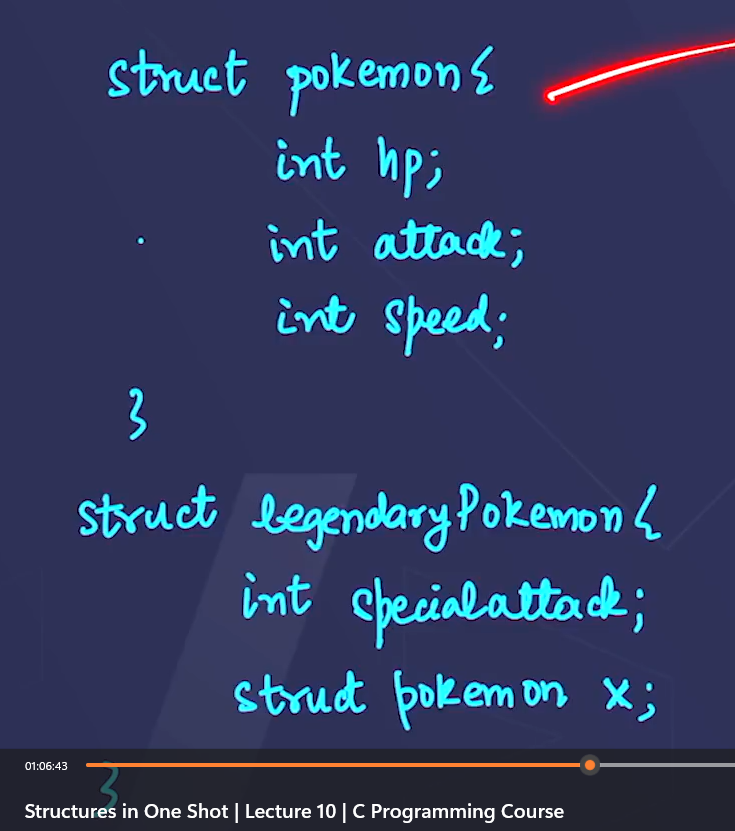 struct pokemon{
int hp;
int attack;
int speed;
}
struct legendaryPokemon{
int specialattack;
struct pokemon x;
}
01:06:43
Structures in One Shot | Lecture 10 | C Programming Course